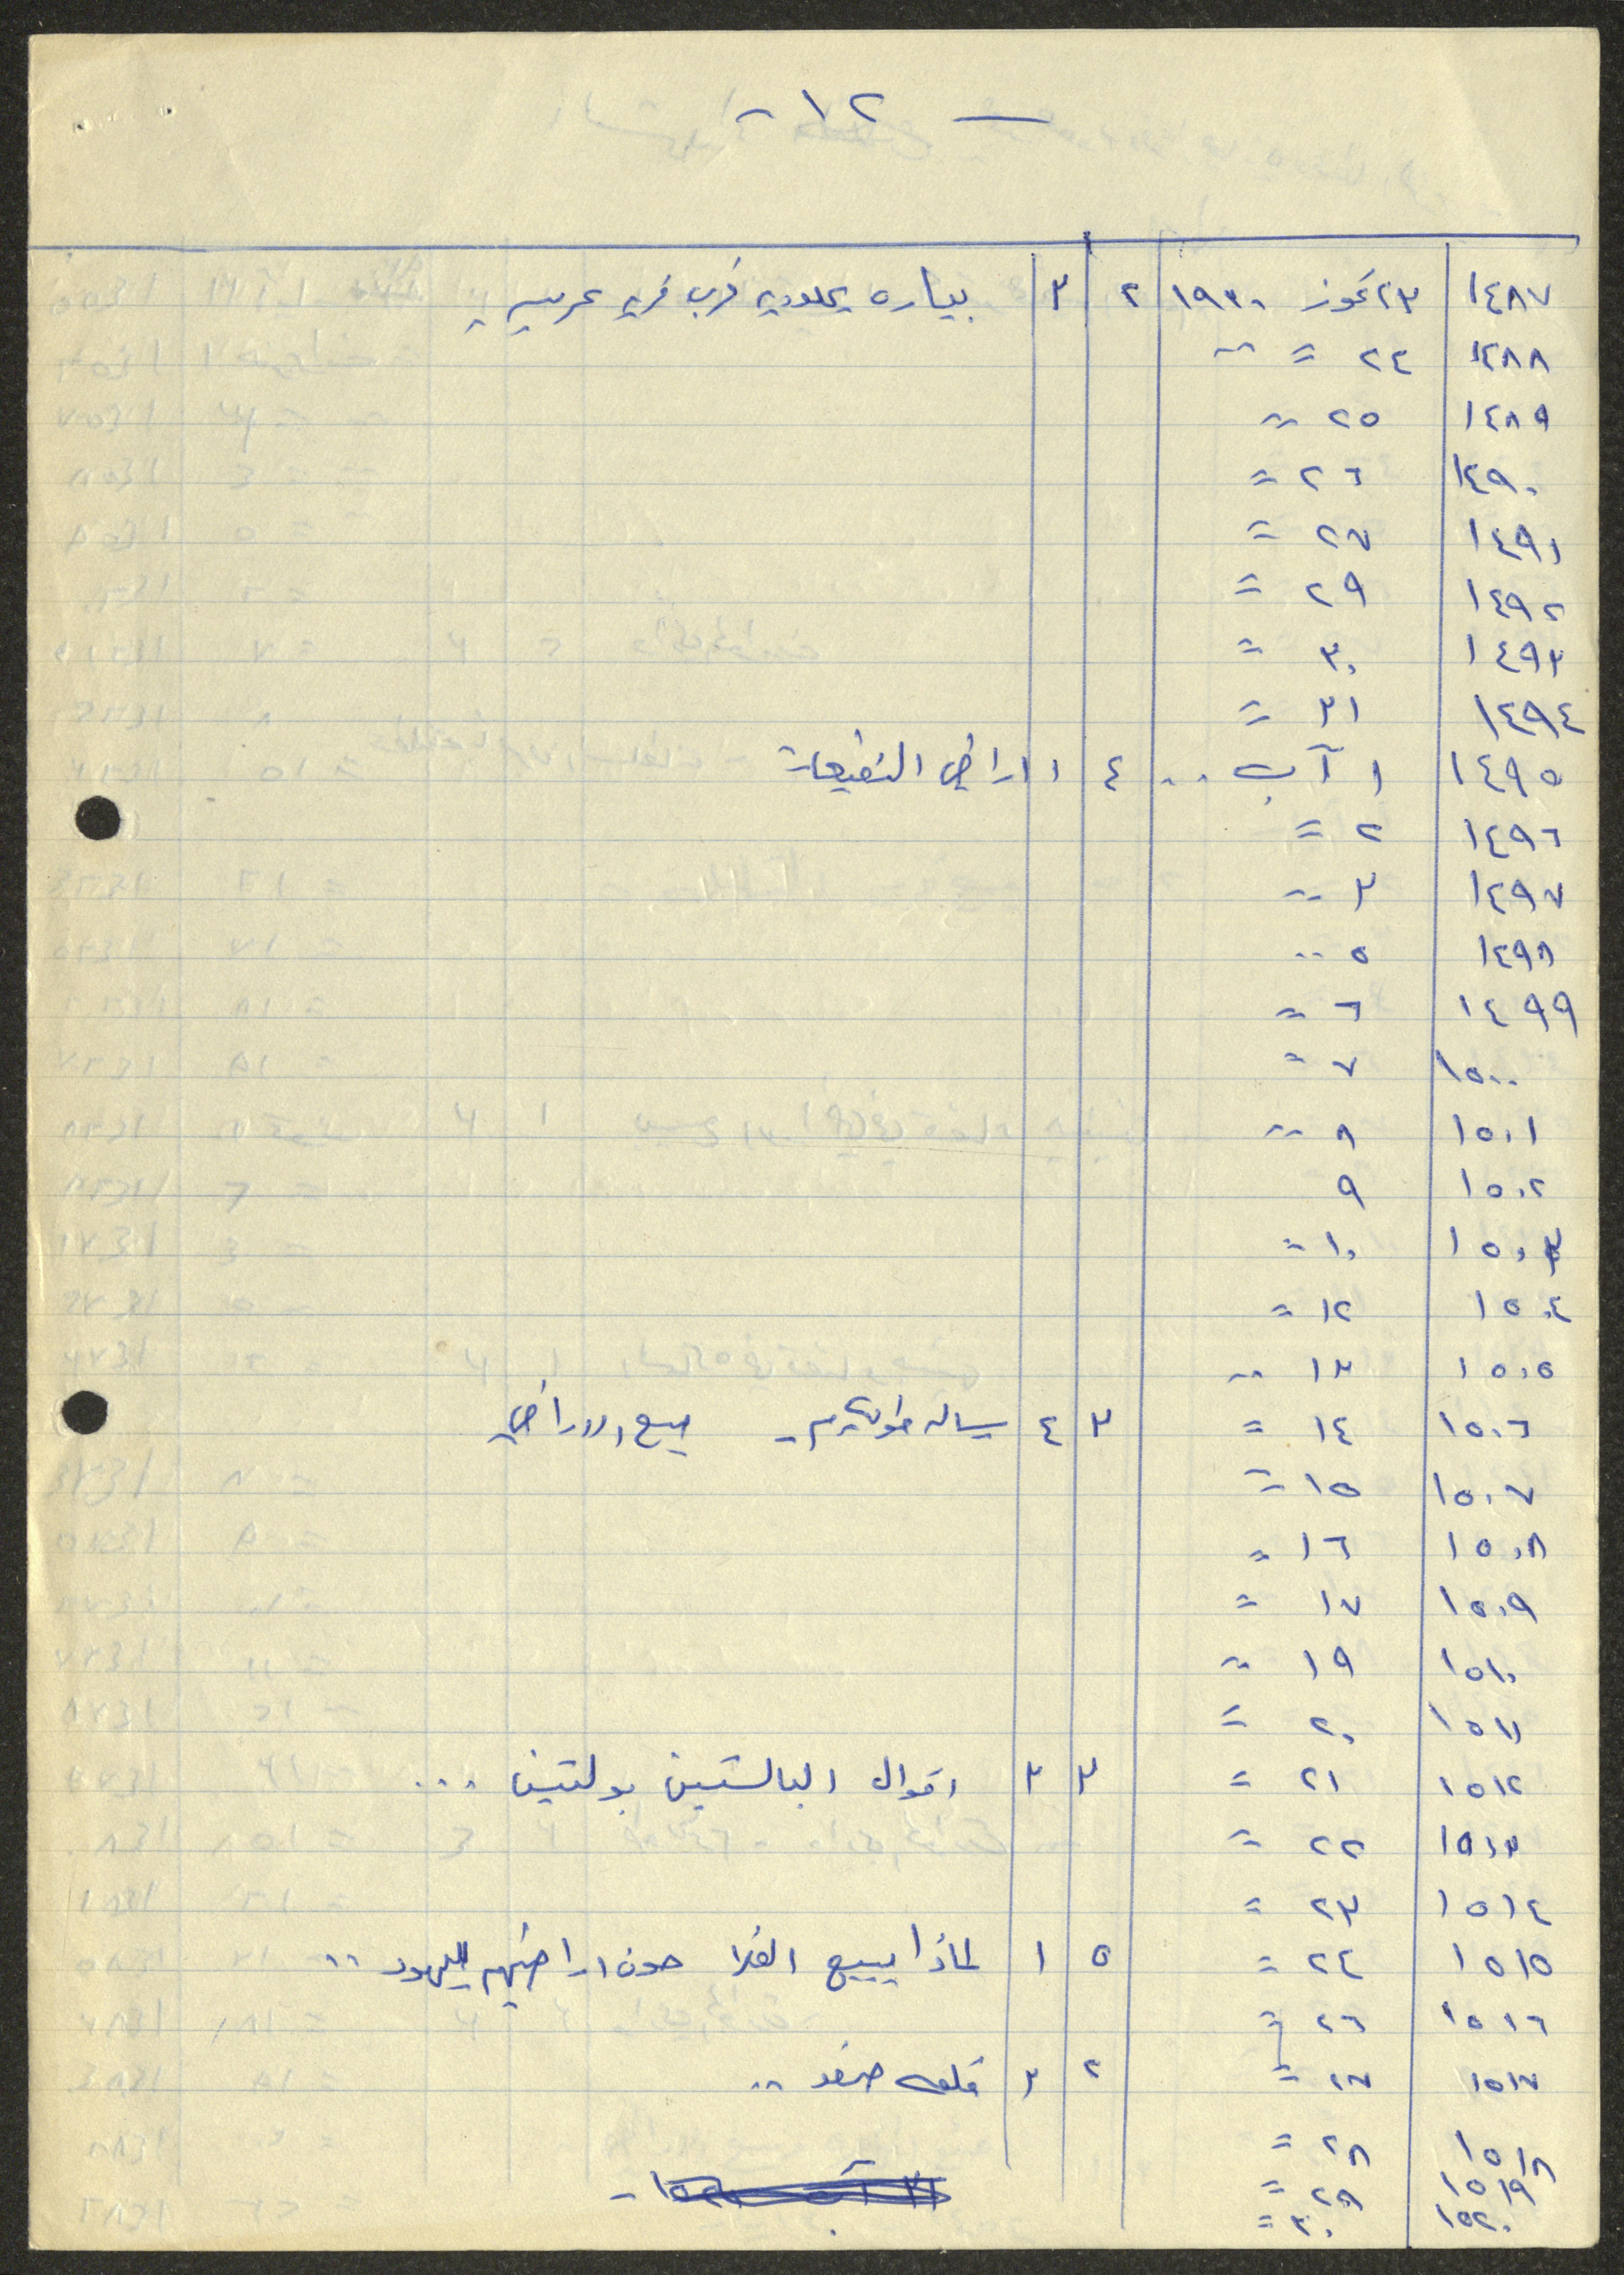 — ١٢ -
١٤٨٧ ٢٣ تموز ١٩٣٠ ٢ ٣ بياره يهوديه قرب قريه عربيه
١٤٨٨ ٢٤ = =
١٤٨٩ ٢٥ =
١٤٩٠ ٢٦ =
١٤٩١ ٢٧ =
١٤٩٢ ٢٩ =
١٤٩٣ ٣٠ =
١٤٩٤ ٣١ =
١٤٩٥ ١ آب .. ٤ ١ اراضي النفيعات
١٤٩٦ ٢ =
١٤٩٧ ٣ =
١٤٩٨ ٥ ..
١٤٩٩ ٦ =
١٥٠٠ ٧ =
١٥٠١ ٨ =
١٥٠٢ ٩
١٥٠٣ ١٠ =
١٥٠٤ ١٢ =
١٥٠٥ ١٣ =
١٥٠٦ ١٤ = ٣ ٤ - بيع الاراضي
١٥٠٧ ١٥ =
١٥٠٨ ١٦ =
١٥٠٩ ١٧ =
١٥١٠ ١٩ =
١٥١١ ٢٠ =
١٥١٢ ٢١ = ٣ ٣ اقوال البالستين بولتين ...
١٥١٣ ٢٢ =
١٥١٤ ٢٣ =
١٥١٥ ٢٤ = ٥ ١ لماذا يبيع الفلاحون اراضيهم لليهود ..
١٥١٦ ٢٦ =
١٥١٧ ٢٧ = ٢ ٣ قلعه صفد ..
١٥١٨ ٢٨ =
١٥١٩ ٢٩ =
١٥٢٠ ٣٠ =